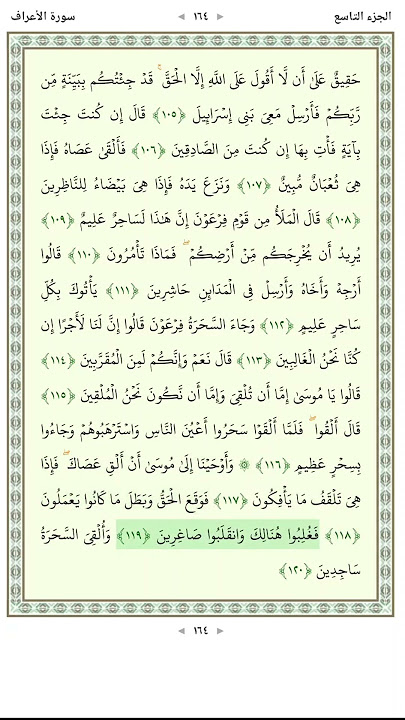 الجزء التاسع
◄ ١٦٤ ►
سورة الأعراف
حَقِيقٌ عَلَىٰ أَن لَّا أَقُولَ عَلَى اللَّهِ إِلَّا الْحَقَّ ۚ قَدْ جِئْتُكُم بِبَيِّنَةٍ مِّن
رَّبِّكُمْ فَأَرْسِلْ مَعِيَ بَنِي إِسْرَائِيلَ ﴿١٠٥﴾ قَالَ إِن كُنتَ جِئْتَ
بِآيَةٍ فَأْتِ بِهَا إِن كُنتَ مِنَ الصَّادِقِينَ ﴿١٠٦﴾ فَأَلْقَىٰ عَصَاهُ فَإِذَا
هِيَ ثُعْبَانٌ مُّبِينٌ ﴿١٠٧﴾ وَنَزَعَ يَدَهُ فَإِذَا هِيَ بَيْضَاءُ لِلنَّاظِرِينَ
﴿١٠٨﴾ قَالَ الْمَلَأُ مِن قَوْمِ فِرْعَوْنَ إِنَّ هَٰذَا لَسَاحِرٌ عَلِيمٌ ﴿١٠٩﴾
يُرِيدُ أَن يُخْرِجَكُم مِّنْ أَرْضِكُمْ ۖ فَمَاذَا تَأْمُرُونَ ﴿١١٠﴾ قَالُوا
أَرْجِهْ وَأَخَاهُ وَأَرْسِلْ فِي الْمَدَائِنِ حَاشِرِينَ ﴿١١١﴾ يَأْتُوكَ بِكُلِّ
سَاحِرٍ عَلِيمٍ ﴿١١٢﴾ وَجَاءَ السَّحَرَةُ فِرْعَوْنَ قَالُوا إِنَّ لَنَا لَأَجْرًا إِن
كُنَّا نَحْنُ الْغَالِبِينَ ﴿١١٣﴾ قَالَ نَعَمْ وَإِنَّكُمْ لَمِنَ الْمُقَرَّبِينَ ﴿١١٤﴾
قَالُوا يَا مُوسَىٰ إِمَّا أَن تُلْقِيَ وَإِمَّا أَن نَّكُونَ نَحْنُ الْمُلْقِينَ ﴿١١٥﴾
قَالَ أَلْقُوا ۖ فَلَمَّا أَلْقَوْا سَحَرُوا أَعْيُنَ النَّاسِ وَاسْتَرْهَبُوهُمْ وَجَاءُوا
بِسِحْرٍ عَظِيمٍ ﴿١١٦﴾ ۞ وَأَوْحَيْنَا إِلَىٰ مُوسَىٰ أَنْ أَلْقِ عَصَاكَ ۖ فَإِذَا
هِيَ تَلْقَفُ مَا يَأْفِكُونَ ﴿١١٧﴾ فَوَقَعَ الْحَقُّ وَبَطَلَ مَا كَانُوا يَعْمَلُونَ
﴿١١٨﴾ فَغُلِبُوا هُنَالِكَ وَانقَلَبُوا صَاغِرِينَ ﴿١١٩﴾ وَأُلْقِيَ السَّحَرَةُ
سَاجِدِينَ ﴿١٢٠﴾
◄ ١٦٤ ►